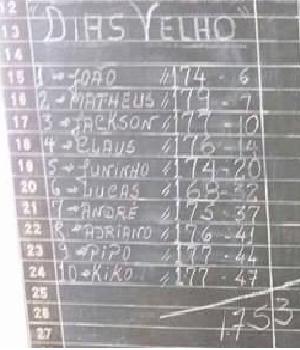 12
13 "DIAS VELHO"
14
15 1→JOÃO //174 - 6
16 2→MATHEUS //179 - 7
17 3→JACKSON //177 - 10
18 4→CLAUS //176 - 14
19 5→JUNINHO //174 - 20
20 6→LUCAS //168 - 32
21 7→ANDRÉ //175 - 37
22 8→ADRIANO //176 - 41
23 9→PIPO //177 - 44
24 10→KIKO //177 - 47
25
26 1.753
27